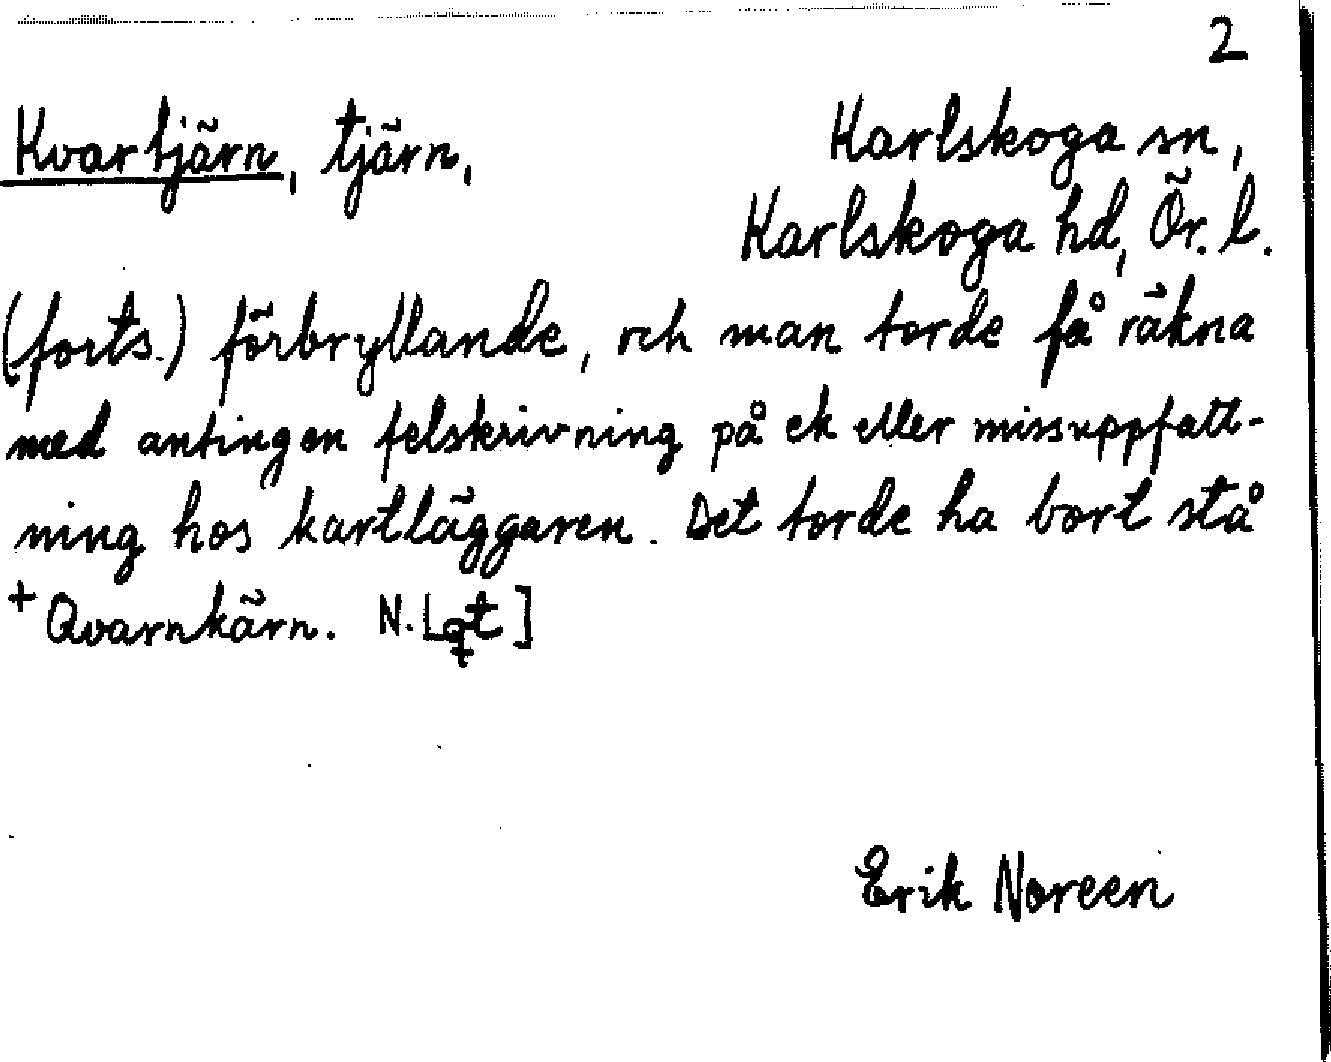 2
Kvartjärn, tjärn, Karlskoga sn,
Karlskoga hd, Ör. l.
(forts.) förbryllande, och man torde få räkna
med antingen felskrivning på ek eller missuppfatt-
ning hos kartläggaren. Det torde ha bort stå
+Qvarnkärn. N. Lqt]
Erik Noreen